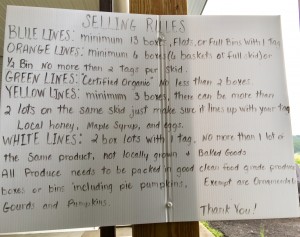 SELLING RULES
BLUE LINES: minimum 13 boxes, Flats, or Full Bins With 1 Tag
ORANGE LINES: minimum 6 boxes (6 baskets or full skid) or
1/2 Bin No more than 2 Tags per skid
GREEN LINES: "Certified Organic" No less than 2 boxes
YELLOW LINES: minimum 3 boxes, there can be more than
2 lots on the same skid just make sure it lines up with your tag
Local honey, Maple Syrup, and eggs.
WHITE LINES: 2 box lots with 1 tag. No more than 1 lot of
the Same product, not locally grown + Baked Goods
All Produce needs to be packed in good clean food grade produce
boxes or bins including pie pumpkins. Exempt are Ornamental
Gourds and Pumpkins.
Thank You!